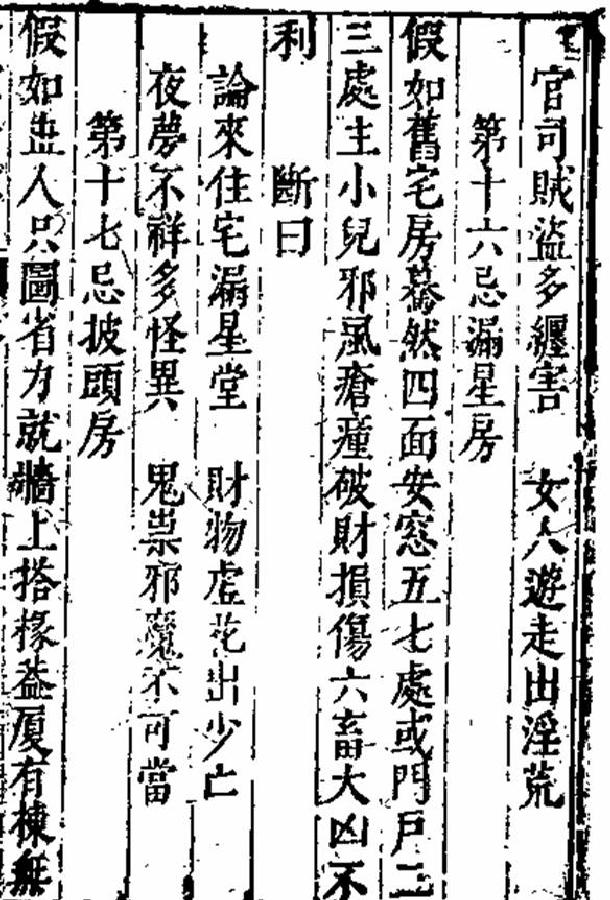 官司賊盜多纏害　女人遊走出淫荒
第十六忌漏星房
假如舊宅房驀然四面安窓五七處或門戸二
三處主小兒邪風瘡瘴破財損傷六畜大凶不
利　斷曰
論來住宅漏星堂　財物虛花出少亡
夜夢不祥多怪異　鬼祟邪魔不可當
第十七忌披頭房
假如盖人只圖省力就牆上搭椽盖厦有棟無